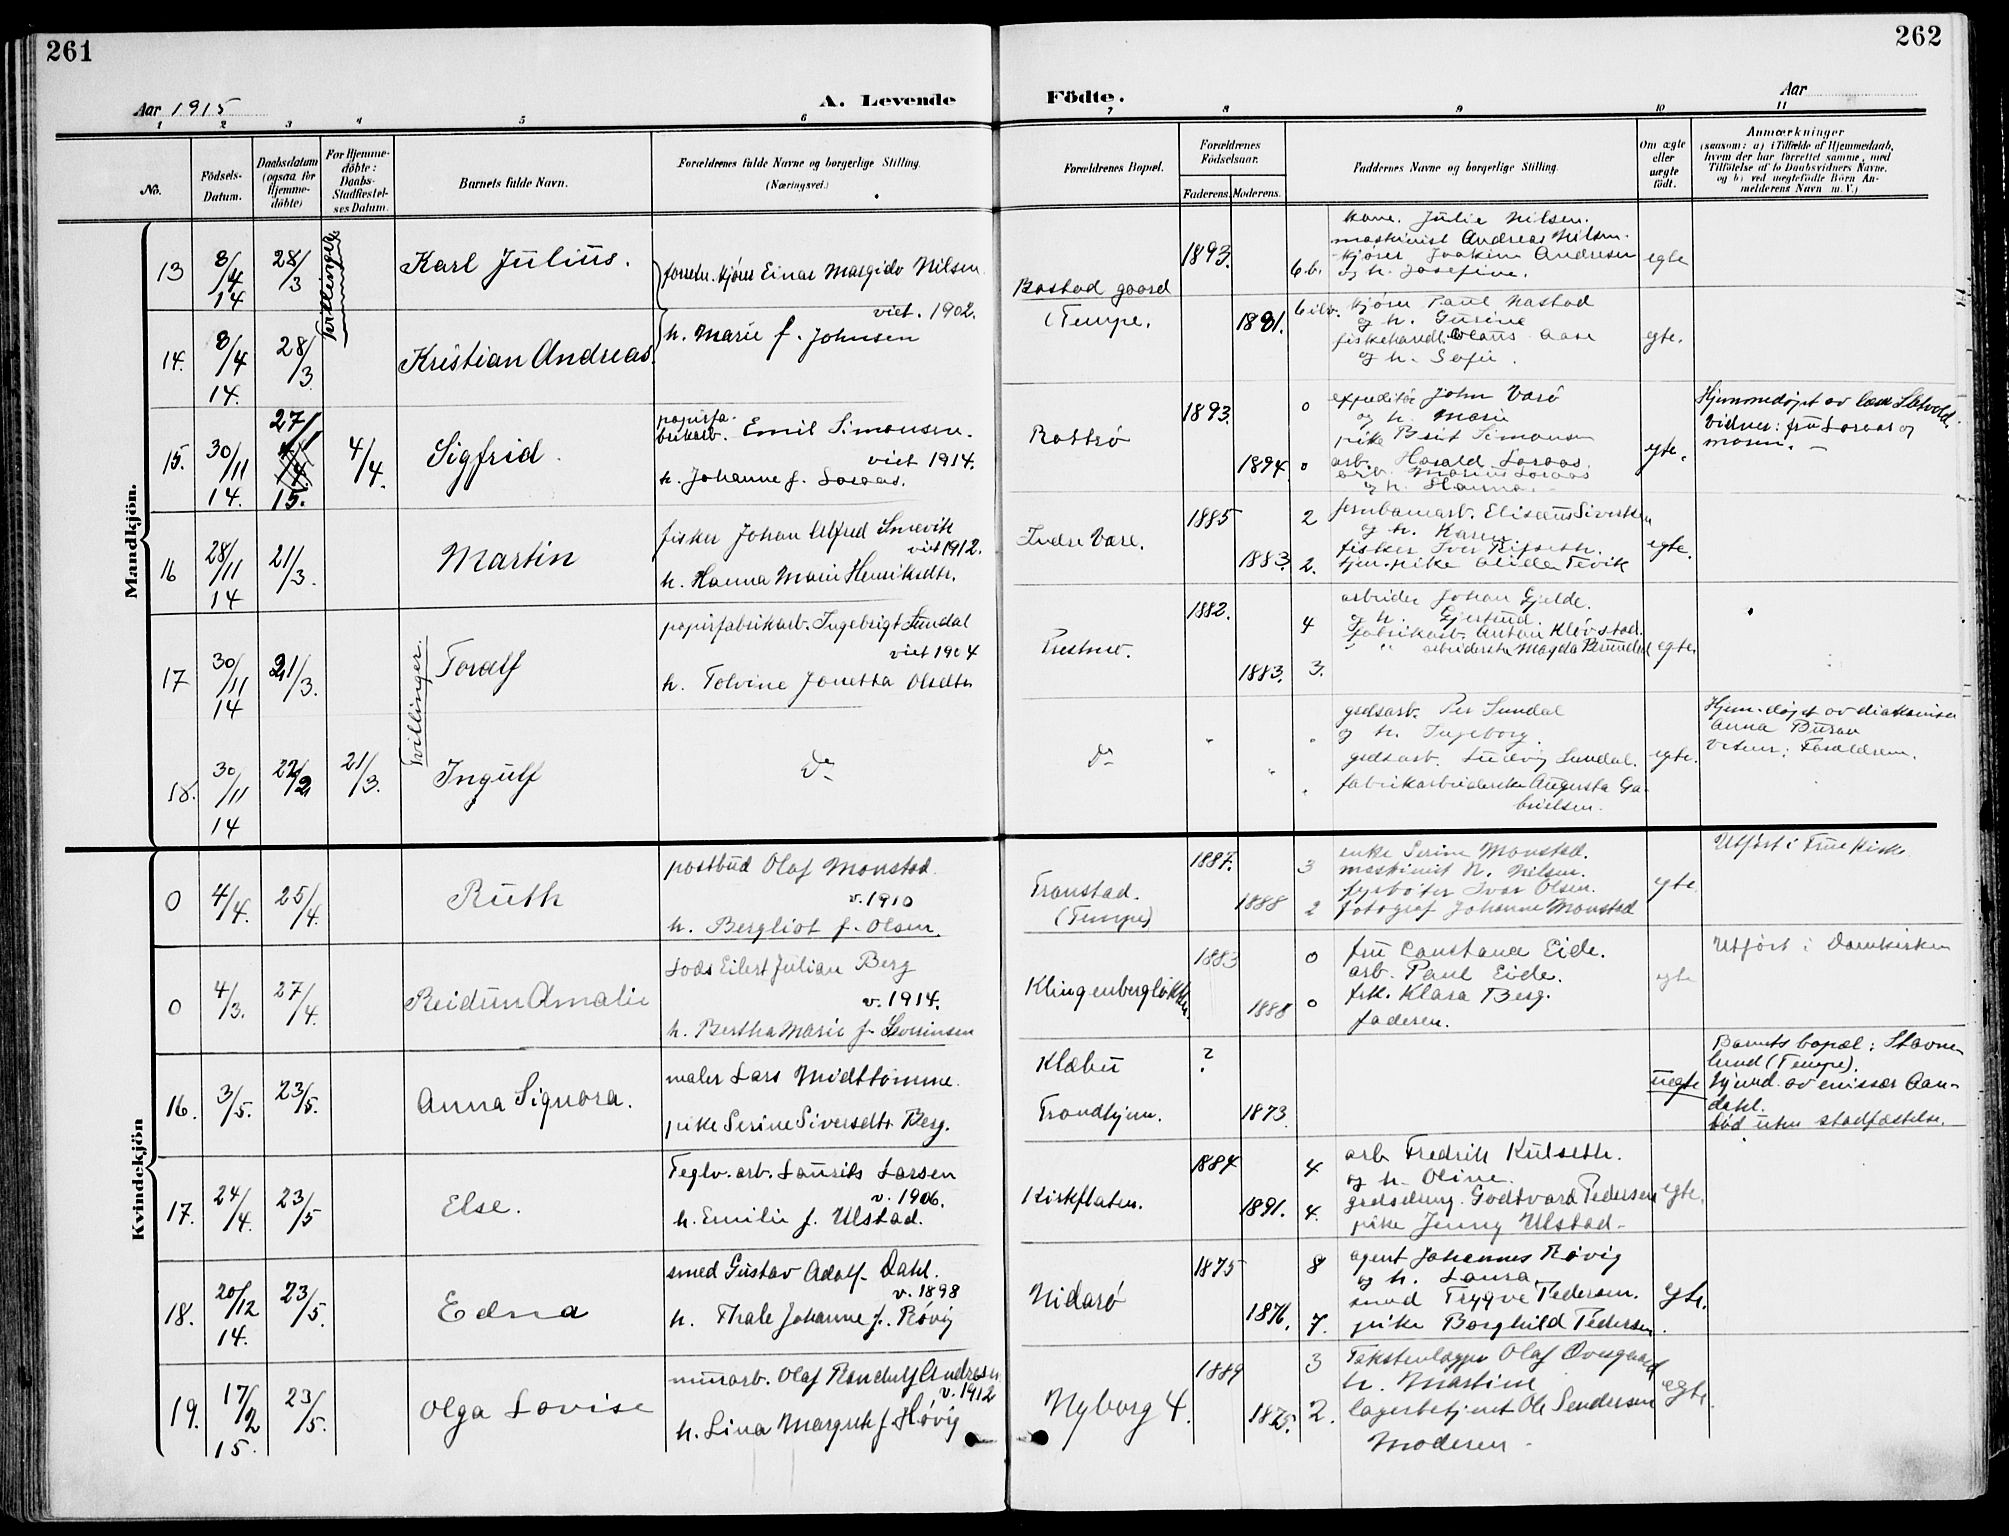 261
262
Aar 1915
A. Levende
Födte.
Aar
1 2 3 4 5 6 7 8 9 10 11
No.
Födsels-
Datum.
Daabsdatum
(ogsaa for
Hjemme-
döbte)
For Hjemme-
döbte:
Daabs-
Stadfæstel-
ses Datum.
Barnets fulde Navn.
Forældrenes fulde Navne og borgerlige Stilling.
(Næringsvei.)
Forældrenes Bopæl.
Forældrenes
Födselsaar.
Faderens. Moderens.
Faddernes Navne og borgerlige Stilling.
Om ægte
eller
uægte
födt.
Anmærkninger
(saasom: a) i Tilfælde af Hjemmedaab,
hvem der har forrettet samme, med
Tilföielse af to Daabsvidners Navne.
og b) ved uægtefödte Börn An-
melderens Navn m. V.)
Mandkjön.
13
8/4
14
28/3
Tvillinger
Karl Julius.
forretn. kjører Einar Margido Nilsen
viet. 1902.
Bostad gaard
(Tempe.
1893.
kone. Julie Nilsen.
maskinist Andreas Nilsen.
kjører Joakim Andresen
og h. Josefine.
egte
14.
8/4
14.
28/3
Kristian Andreas
h. Marie f. Johnsen
1881.
kjører Paul Nastad
og h. Gurine
fiskehandl. Claus Aase
og h. Sofie.
egte.
15.
30/11
14.
27/1
15.
4/4.
Sigfrid.
papirfa-
brikarb. Emil Simonsen.
viet 1914.
h. Johanne f. Soraas.
Rottrø
1893.
1894.
0
0
expeditør John Varø
og h. Marie
pike Berit Simonsen
arb. Harald Soraas.
arb. Marius Soraas
og h. Hanna.
egte.
Hjemmedøpt av
Vidner: fru Soraas og
moren. –
16
28/11
14
21/3.
Martin
fisker Johan Alfred Smevik
viet 1912.
h. Hanna Marie Henriksdtr.
Indre Vare.
1885
1883.
2
2.
jernbanearb. Eliseus Sivertsen
og h. Karen
fisker Iver
tjen. pike
egte.
17
30/11
14
21/3.
Tvillinger.
Toralf
papirfabrikarb. Ingebrigt Sundal
viet 1904
h. Tolvine Jonetta Olsdtr
1882.
1883.
4
3.
arbeider Johan Gjelde.
og h. Gjertrud.
fabrikarb. Anton Kløvstad.
" " arbeiderske Magda Brundal
egte
18.
30/11
14
22/2
21/3.
Ingulf
Do
Do
grdsarb. Per Sundal
og h. Ingeborg.
grdsarb. Ludvig Sundal.
fabrikarbeiderske Augusta Ga-
brielsen.
egte.
Hjem.døpt av diakonisse
Anna Buran
Vidner: Forældrene.
Kvindekjön
0
4/4.
25/4.
Ruth
postbud Olaf Monstad
v. 1910
h. Bergliot f. Olsen.
Transtad.
(Tempe)
1887.
1888
3
2
enke Serine Monstad.
maskinist N. Nilsen.
fyrbøter Ivar Olsen.
fotograf Johanne Monstad
egte
Utført i Frue Kirke
0
4/3.
27/4.
Reidun Amalie
Lods Eilert Julian Berg
v. 1914.
h. Bertha Marie f. Sorinsen
Klingenbergløkken.
1883
1888
0
0
fru Constance Eide.
arb. Paul Eide.
frk. Klara Berg.
faderen.
egte
Utført i Domkirken
16.
3/5.
23/5.
Anna Signora.
maler Lars Midttømme.
pike Serine Siversdtr Berg.
Klæbu
Trondhjem.
?
1873
uegte
Barnets bopæl: Stavne-
lund (Tempe).
hjemd. av emissær Aan-
dahl.
død uten stadfæstelse.
17.
24/4.
23/5
Else.
Teglv. arb. Laurits Larsen
v. 1906.
h. Emilie f. Ulstad.
Kirkflaten.
1884
1891.
4
4.
arb. Fredrik Kulseth.
og h. Oline.
grdsdreng. Godtvard Pedersen
pike Jenny Ulstad –
egte.
18.
20/12
14.
23/5.
Edna
smed Gustav Adolf Dahl.
v. 1898
h. Thale Johanne f. Røvig
Nidarø
1875
1876.
8
7.
agent Johannes Røvig
og h. Laura
smed Trygve Pedersen.
pike Borghild Pedersen.
egte.
19.
17/2
15.
23/5.
Olga Lovise
murarb. Olaf Randulf Andresen
v. 1912
h. Lina Margreth f. Høvig
Nyborg 4.
1889
1875.
3
2.
Takstenlægger Olaf Ovesgaard
h. Martine
lagerbetjent Ole Sendersen
Moderen –
egte.